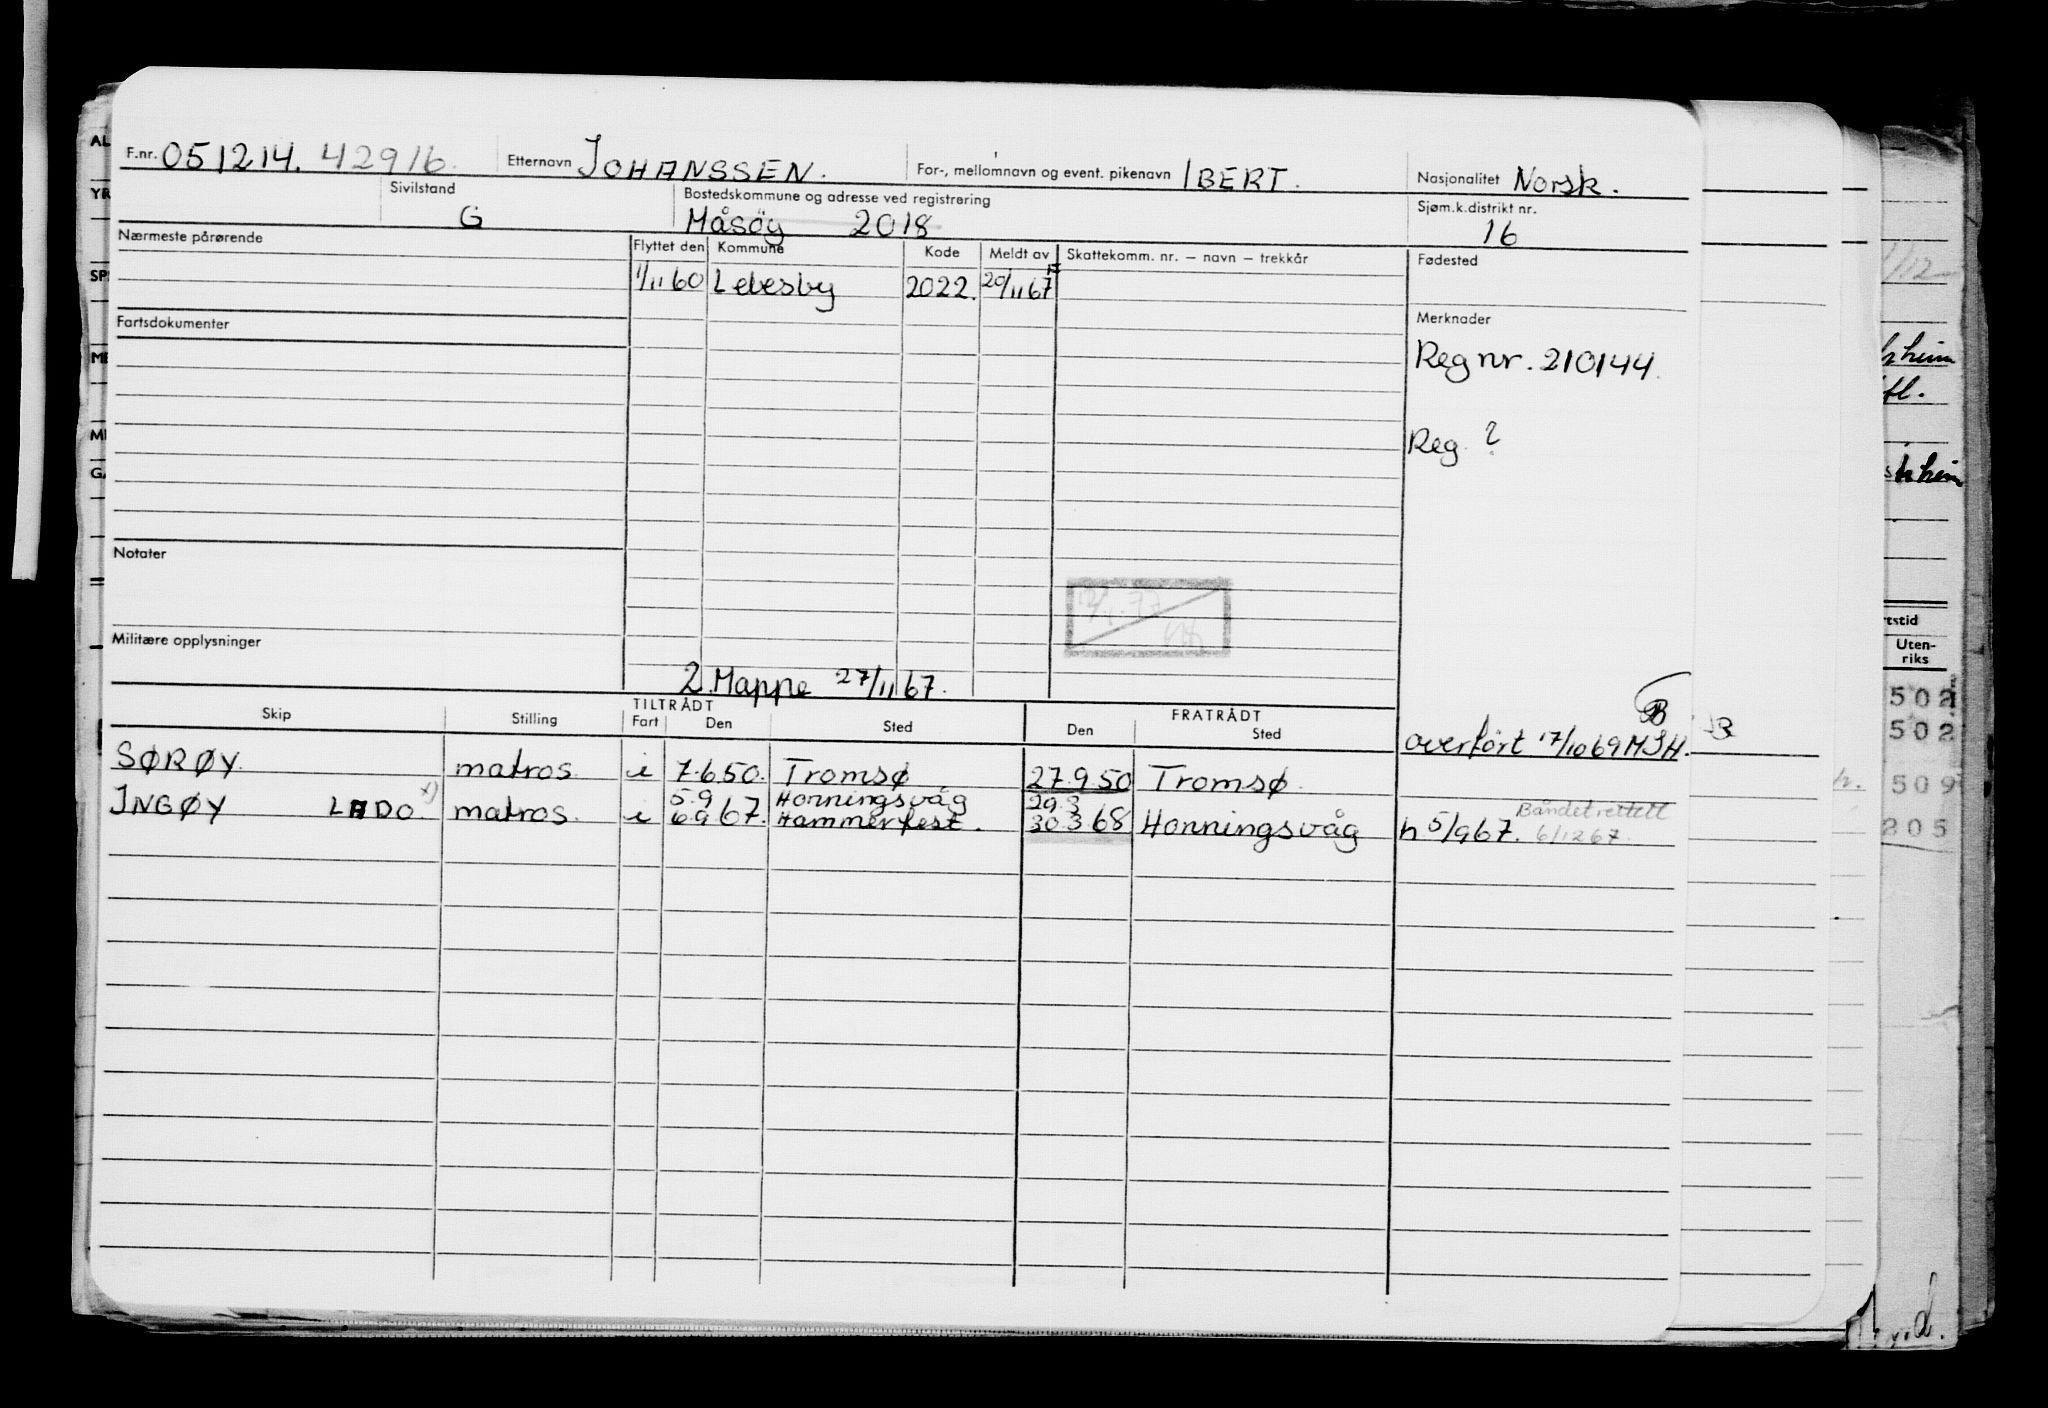 F.nr. 051214. 42916. Etternavn JOHANSSEN. For-, mellomnavn og event. pikenavn IBERT. Nasjonalitet Norsk.
Sivilstand G Bostedskommune og adresse ved registrering Måsöy 2018 Sjøm.k.distrikt nr. 16
Nærmeste pårørende Flyttet den Kommune Kode Meldt av Skattekomm. nr. – navn – trekkår Fødested
1/11 60 Lebesby 2022. 20/11 67
Fartsdokumenter Merknader
Reg nr. 210144.
Reg. ?
Notater
12/1.77
Militære opplysninger
2. Mappe 27/11 67.
TILTRÅDT FRATRÅDT
Skip Stilling Fart Den Sted Den Sted
overført 17/10 69 MSH.
SØRØY. matros. i 7.6.50. Tromsø 27.9.50 Tromsø.
5.9 Honningsvåg 29.3
INGØY LADO. x) matros. i 6.9 67. Hammerfest. 30.3 68 Honningsvåg h 5/9 67. Båndet rettett
6/12 67.
AL
YR
SP
ME
MI
GA
/12
hheim
fl.
shheim
rtstid
Uten-
riks
502
502
509
205